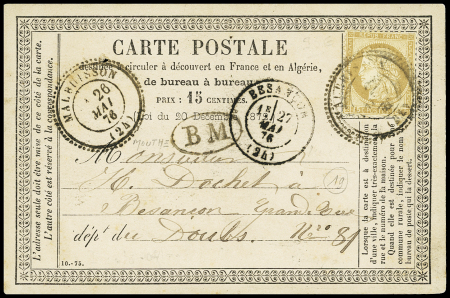 CARTE POSTALE
destinée à circuler à découvert en France et en Algérie,
de bureau à bureau
PRIX : 15 CENTIMES.
Loi du 20 Décembre 1872
L'adresse seule doit être mise de ce côté de la carte.
L'autre côté est réservé à la correspondance.
MALBUISSON
26
MAI
76
(24)
BESANÇON
27
MAI
76
(24)
BM
MOUTHE
Monsieur
C. Dochet à
Besançon Grand Rue
dépt du Doubs. No 81
Lorsque la carte est destinée à
d'une ville, indiquer très-exactement la
rue et le numéro de la maison.
Quand elle est destinée à une
commune rurale, indiquer le nom
du bureau de poste qui la dessert.
10.-75.